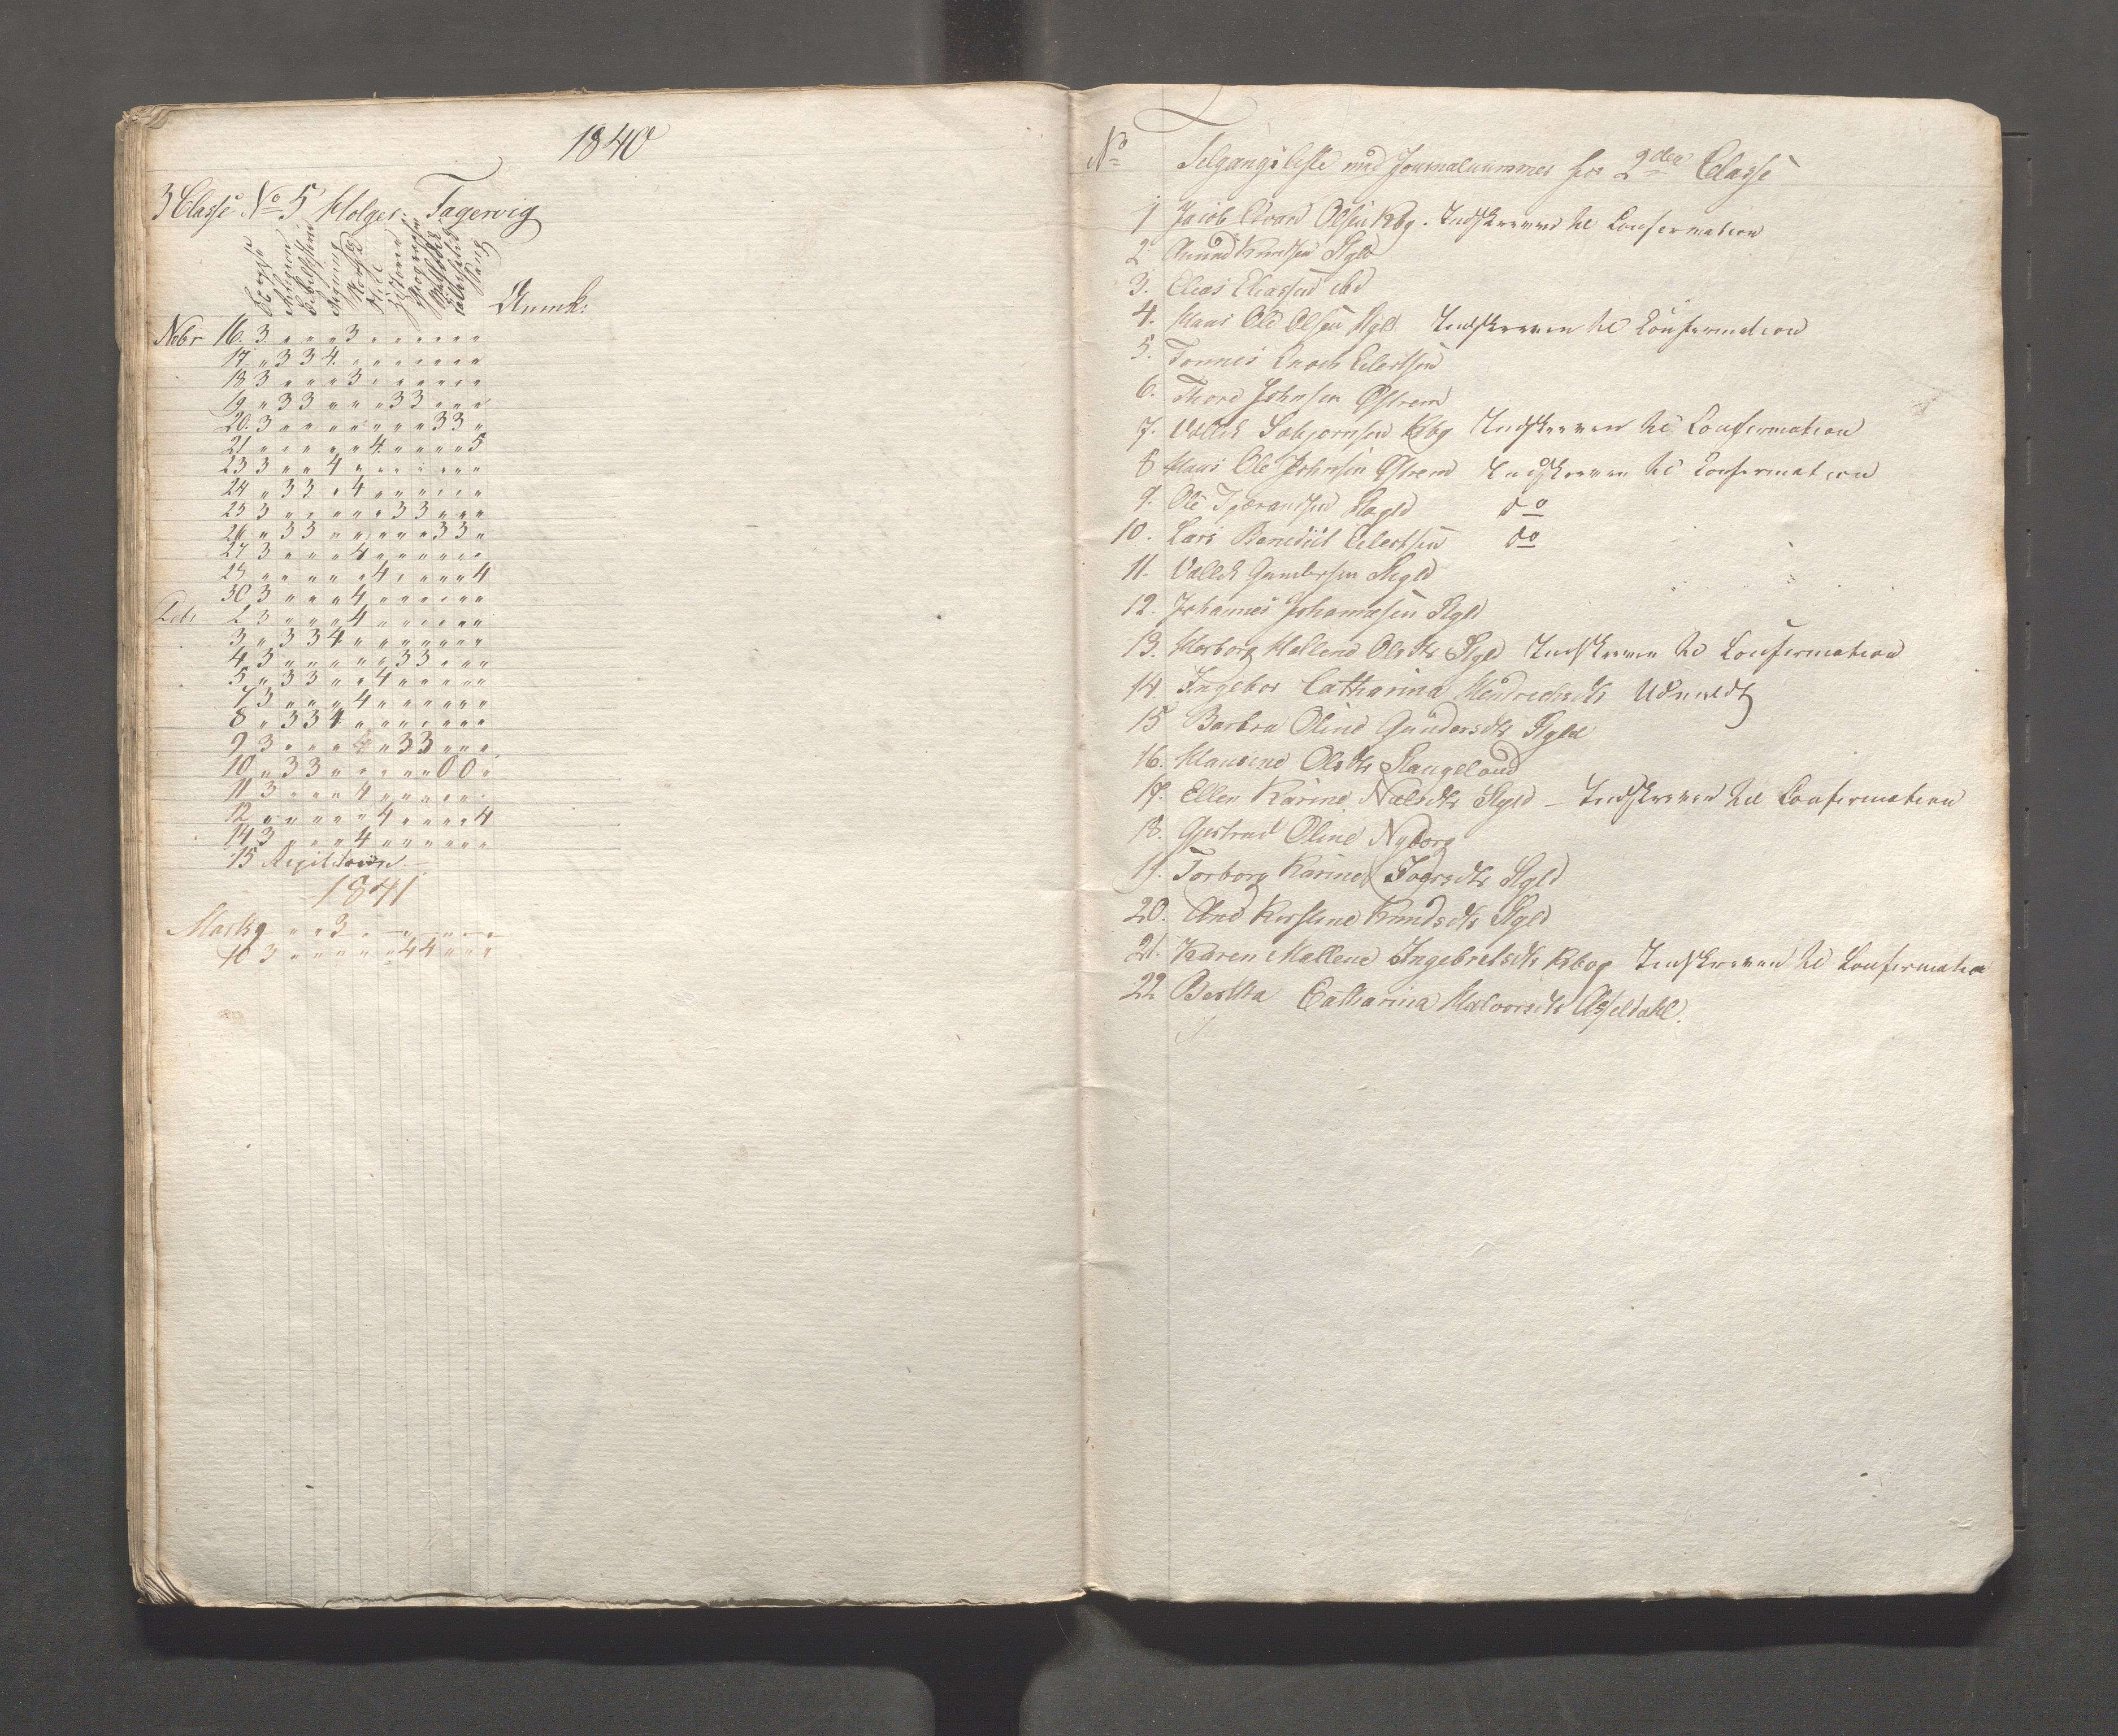 1840
3 Classe No 5 Holger Fagervig
Religion
Anmk:
Nobr 16. 3 " " " 3 " " " " " "
17 " 3 3 4 " " " " " " "
18 3 " " " 3 " " " " " "
19 " 3 3 " " " 3 3 " " "
20. 3 " " " " " " " 3 3 "
21 " " " " " 4 " " " " 5
23 3 " " 4 " " " " " " "
24 " 3 3 " 4 " " " " " "
25 3 " " " " " 3 3 " " "
26 " 3 3 " " " " " 3 3 "
27 3 " " " 4 " " " " " "
28 " " " " " 4 " " " " 4
30 3 " " " 4 " " " " " "
2 3 " " " 4 " " " " " "
3 " 3 3 4 " " " " " " "
4 3 " " " " " 3 3 " " "
5 " 3 3 " " 4 " " " " "
7 3 " " " 4 " " " " " "
8 " 3 3 4 " " " " " " "
9 3 " " " 4 " 3 3 " " "
10 " 3 3 " " " " " 0 0 "
11 3 " " " 4 " " " " " "
12 " " " " " 4 " " " " 4
14 3 " " " 4 " " " " " "
15
1841
Marts 9 " " 3 " " " " " "
10 3 " " " " " 4 4 " " "
No Tilgangsliste med Journalnummer for 2den Classe
1 Jacob Edvard Olsen Kbg. Indskreven til Confirmation
2 Amund Knudsen Sgld
3. Elias Eliassen ibd
4. Hans Ole Olsen Sgld Indskreven til Confirmation
5. Tønnes Enoch Eilertsen
6. Thore Johnsen Østrem
7. Valdk Sobjørnsen Kbg Indskreven til Confirmation
8 Hans Ole Johnsen Østrem Indskreven til Confirmation
9. Ole Tjerandsen Sagld do
10. Lars Benedict Eilertsen do
11. Valdk Gundersen Sgld
12. Johannes Johannesen Sgld
13. Marborg Mallene Olsdtr Sgld Indskreven til Confirmation
14 Ingebor Catharina Hendrichsdtr Udmeldt
15 Barbra Oline Gundersdtr Sgld
16. Hansine Olsdtr Stangeland
17. Ellen Karine Nielsdtr Sgld - Indskreven til Confirmation
18. Gjertrud Oline Nyborg
19. Torborg Karine Sgld
20. Ane Kirstine Knudsdtr Sgld
21. Karen Mallene Ingebretsdtr Kbg Indskreven til Confirmation
22 Bertha Catharina Halvorsdtr